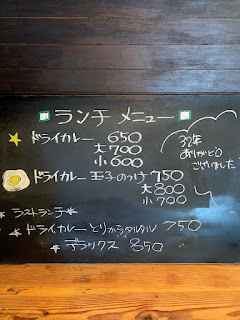 ランチ メニュー
ドライカレー 650
大700
小600
32年
ありがとう
ございました
ドライカレー 玉子のっけ 750
大800
小700
*ラストランチ*
*ドライカレーとりからタルタル 750
*デラックス 850